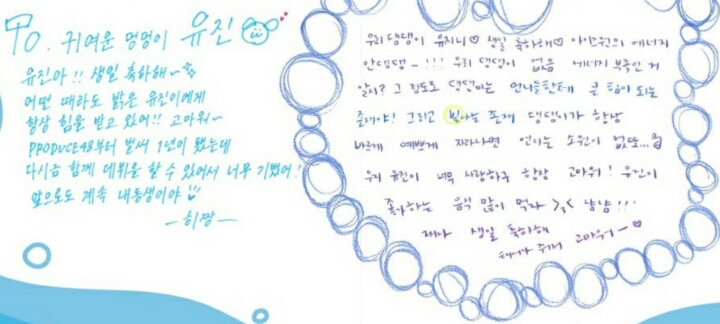 To. 귀여운 멍멍이 유진
유진아!! 생일 축하해~☆
어떤 때라도 밝은 유진이에게
항상 힘을 받고 있어!! 고마워~
PRODUCE48부터 벌써 1년이 됐는데
다시금 함께 데뷔를 할 수 있어서 너무 기뻤어!
앞으로도 계속 내 동생이야
—히짱—
우리 댕댕이 유지니♡ 생일 축하해♡ 아이즈원의 에너지
안댕댕~!!! 우리 댕댕이 없음 에너지 부족인 거
알지? 그 정도로 댕댕이는 언니들한테 큰 힘이 되는
존재야! 그리고 빛나는 존재 댕댕이가 항상
바르게 예쁘게 자라나면 언니는 소원이 없또...
우리 유진이 너무 사랑하구 항상 고마워! 유진이
좋아하는 음식 많이 먹자 >_< 냠냠!!!
생일 축하해
고마워~♡